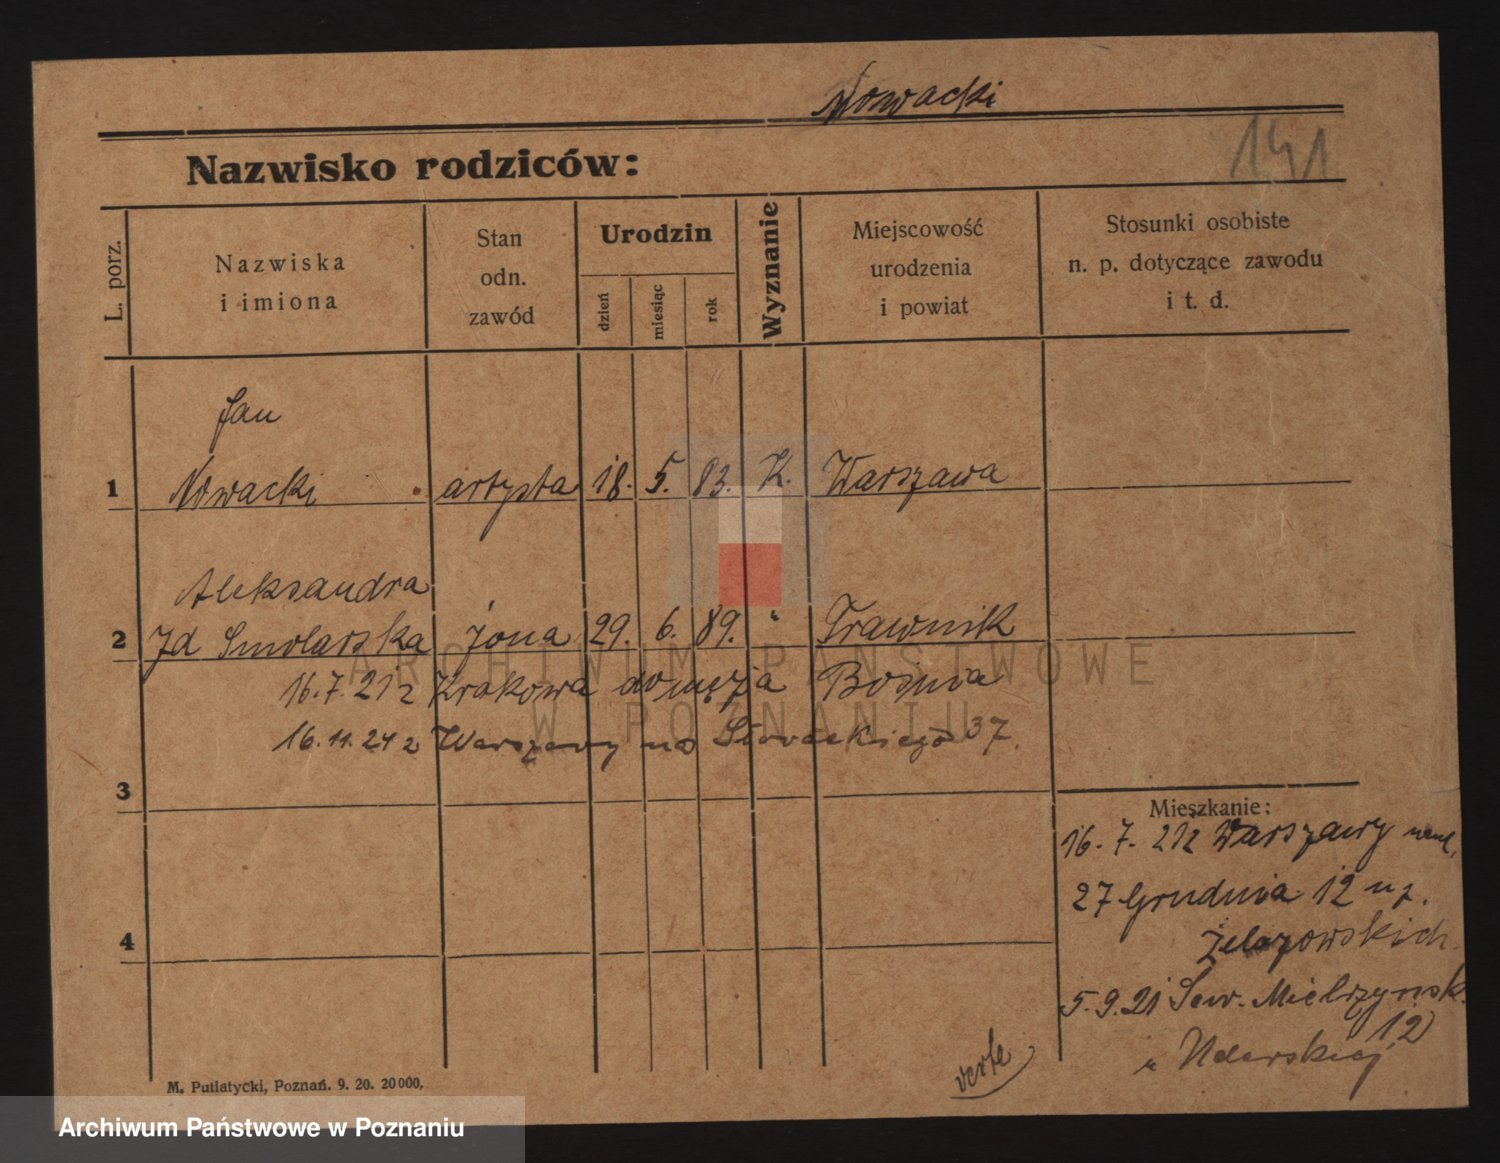 Nowacki
141
Nazwisko rodziców:
L. porz.
Nazwiska
i imiona
Stan
odn.
zawód
Urodzin
dzień
miesiąc
rok
Wyznanie
Miejscowość
urodzenia
i powiat
Stosunki osobiste
n. p. dotyczące zawodu
i t. d.
Jan
1 Nowacki artysta 18. 5. 83. K. Warszawa
Aleksandra
2 Smolarska żona 29. 6. 89. " Trawnik
16.7.21 z Krakowa do męża Bośnia
16.11.24 z Warszawy na Słowackiego 37.
3
4
Mieszkanie:
16. 7. 21 z Warszawy
27 Grudnia 12 u p.
Żelazowskich.
5.9.21 Sew. Mielżyńsk.
12
u
verte
M. Putiatycki, Poznań. 9. 20. 20000.
ARCHIWUM PAŃSTWOWE
W POZNANIU
Archiwum Państwowe w Poznaniu